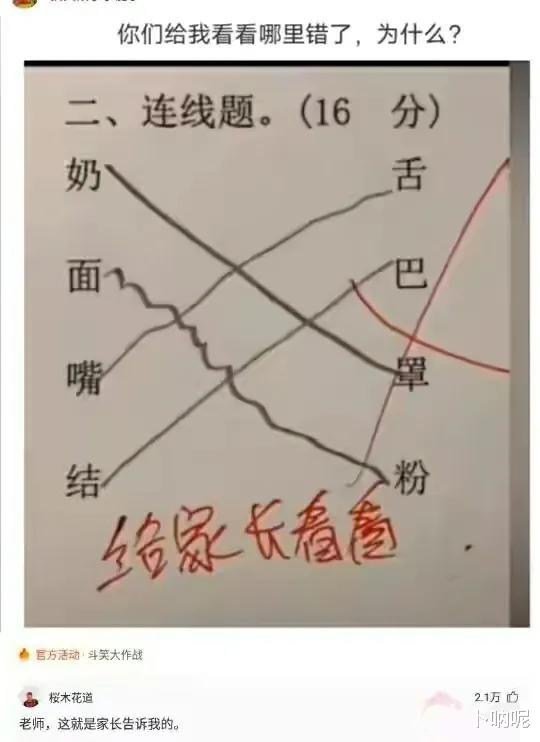 你们给我看看哪里错了，为什么？
二、连线题。(16 分)
奶 舌
面 巴
嘴 罩
结 粉
给家长看看
官方活动·斗笑大作战
桜木花道 2.1万
老师，这就是家长告诉我的。
卜呐呢